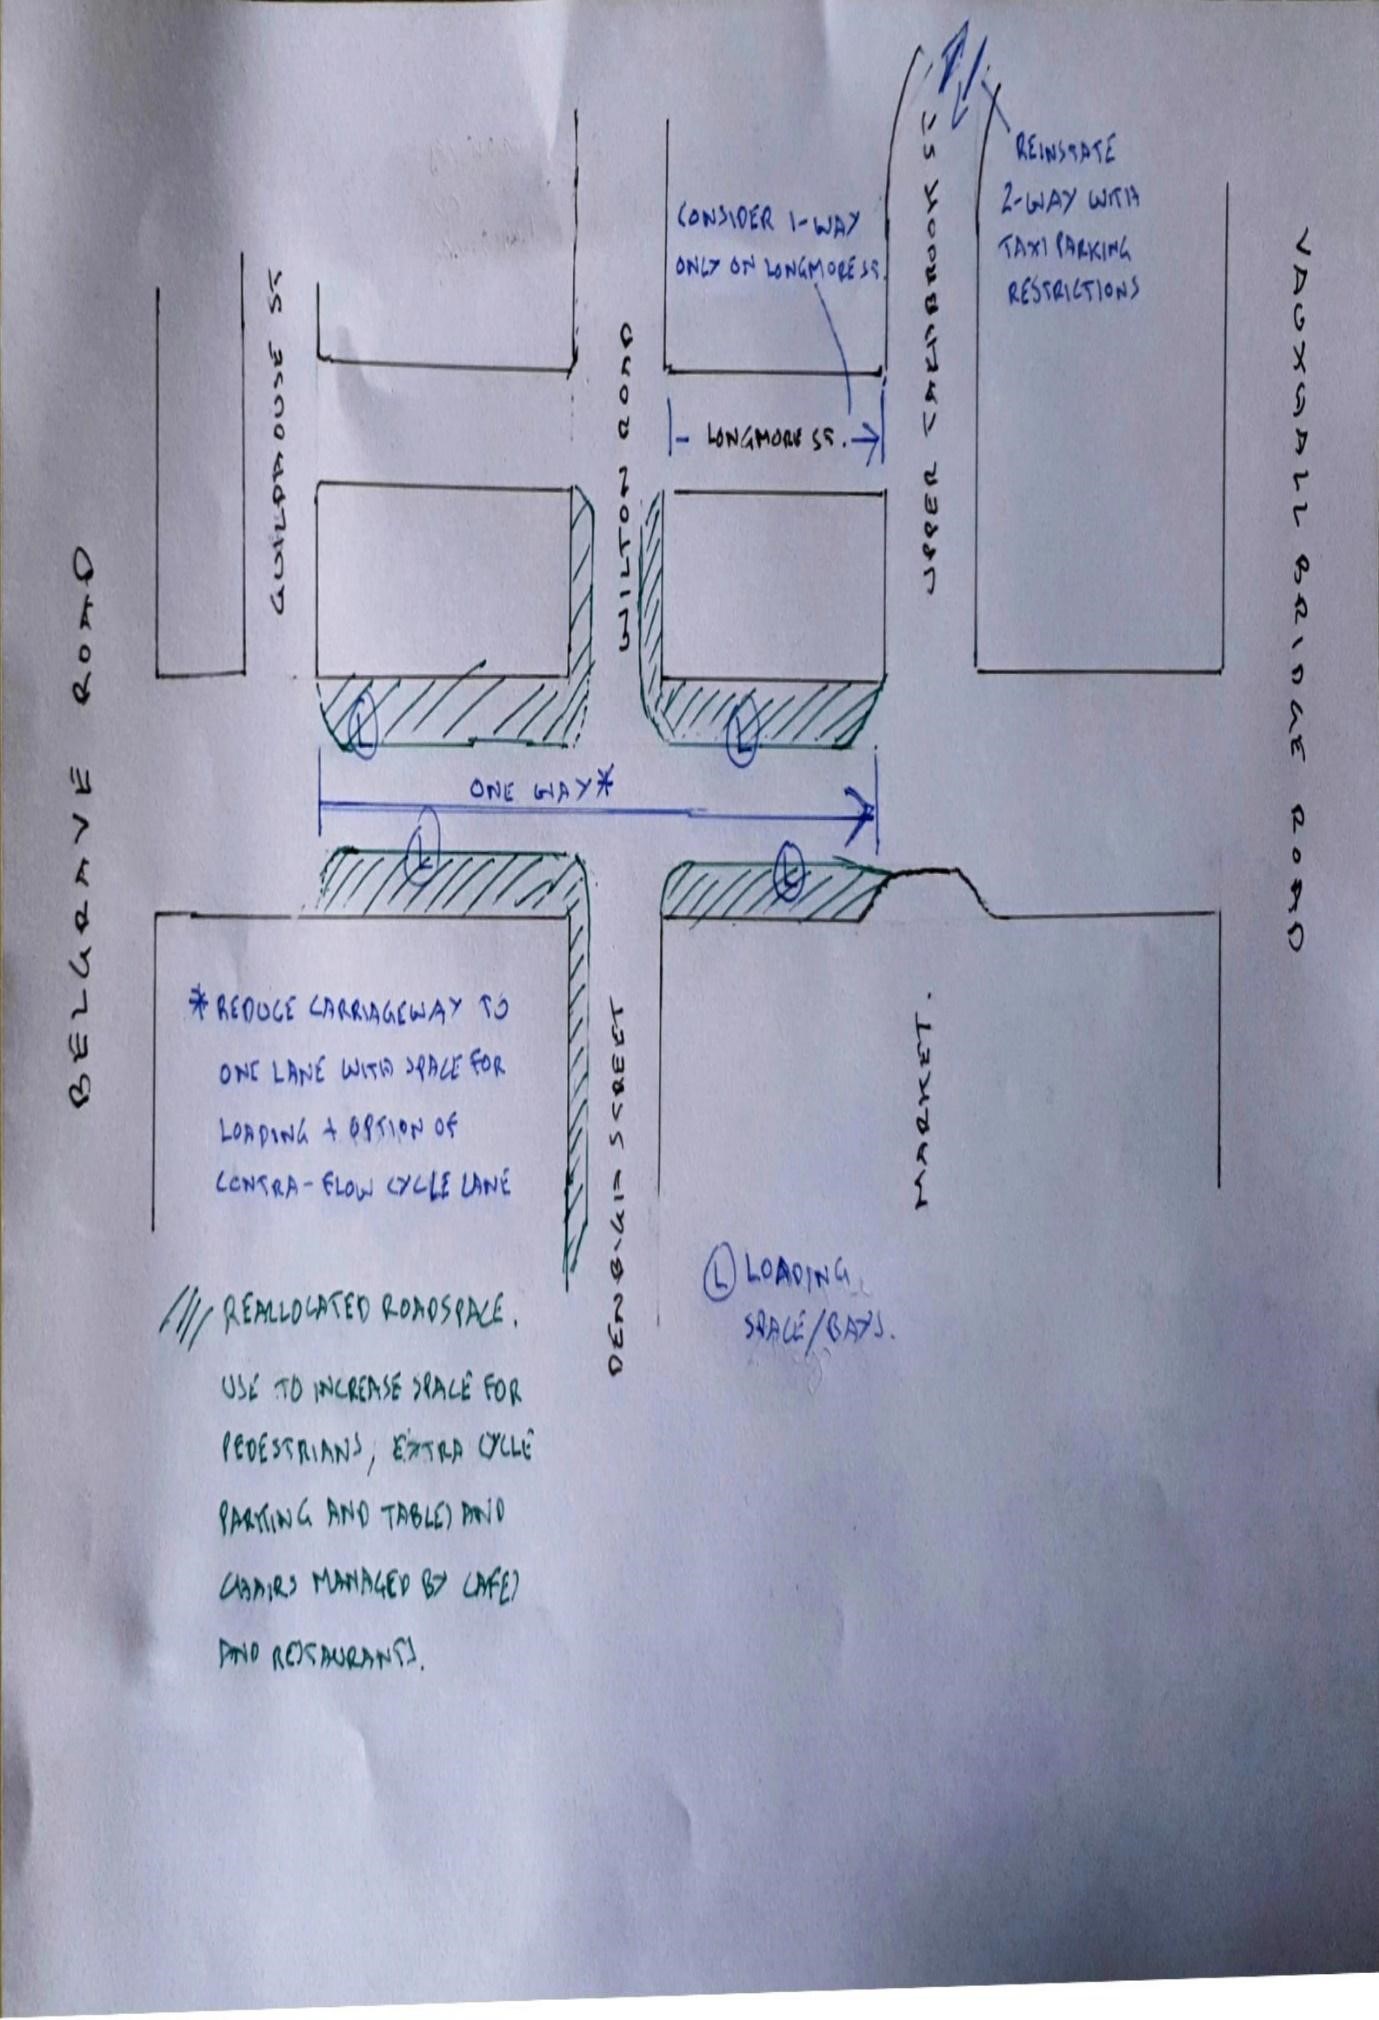 REINSTATE
2-WAY WITH
TAXI PARKING
RESTRICTIONS
CONSIDER 1-WAY
ONLY ON LONGMORE ST.
LONGMORE ST.
BELGRAVE ROAD
GUILDHOUSE ST
WILTON ROAD
UPPER TACHBROOK ST
VAUXHALL BRIDGE ROAD
L
L
ONE WAY*
L
L
* REDUCE CARRIAGEWAY TO
ONE LANE WITH SPACE FOR
LOADING + OPTION OF
CONTRA-FLOW CYCLE LANE
DENBIGH STREET
MARKET.
L LOADING
SPACE/BAYS.
REALLOCATED ROADSPACE.
USE TO INCREASE SPACE FOR
PEDESTRIANS, EXTRA CYCLE
PARKING AND TABLES AND
CHAIRS MANAGED BY CAFES
AND RESTAURANTS.